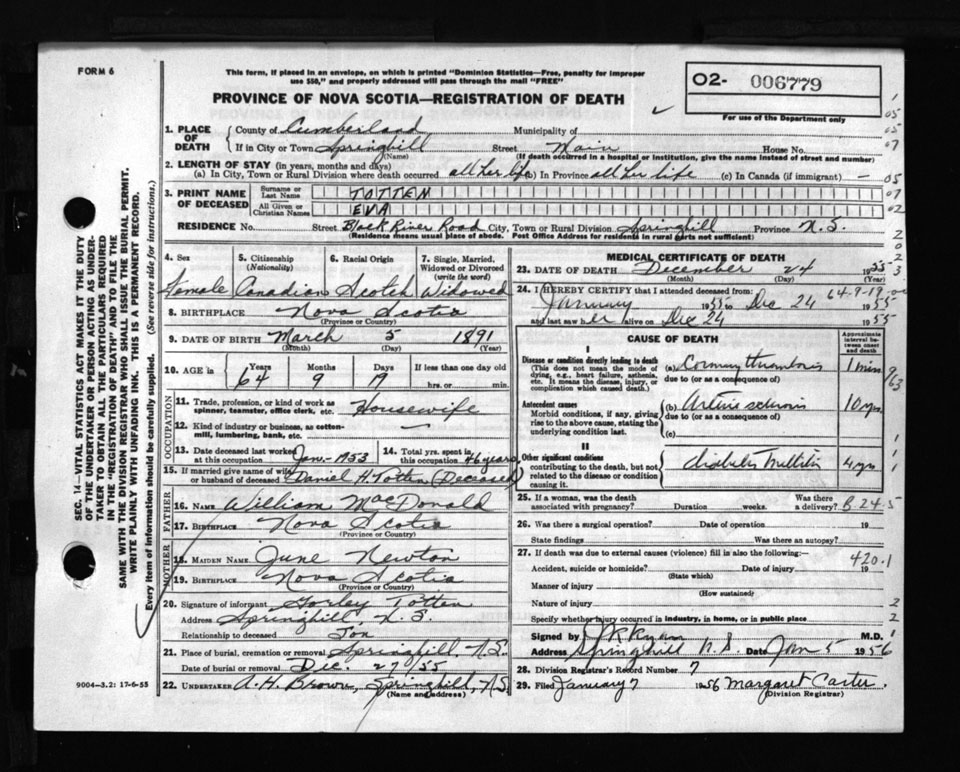 FORM 6
This form, if placed in an envelope, on which is printed "Dominion Statistics—Free, penalty for improper
use $50," and properly addressed will pass through the mail "FREE"
PROVINCE OF NOVA SCOTIA—REGISTRATION OF DEATH
O2- 006779
For use of the Department only
1. PLACE OF DEATH
County of Cumberland Municipality of
If in City or Town Springhill Street Main House No.
(Name) (If death occurred in a hospital or institution, give the name instead of street and number)
2. LENGTH OF STAY (in years, months and days)
(a) In City, Town or Rural Division where death occurred all her life (b) In Province all her life (c) In Canada (if immigrant) —
3. PRINT NAME OF DECEASED
Surname or Last Name TOTTEN
All Given or Christian Names EVA
RESIDENCE No. Street Black River Road City, Town or Rural Division Springhill Province N.S.
(Residence means usual place of abode. Post Office Address for residents in rural parts not sufficient)
4. Sex 5. Citizenship (Nationality) 6. Racial Origin 7. Single, Married, Widowed or Divorced (write the word)
Female Canadian Scotch Widowed
8. BIRTHPLACE Nova Scotia
(Province or Country)
9. DATE OF BIRTH March 5 1891
(Month) (Day) (Year)
10. AGE in Years Months Days If less than one day
64 9 19 hrs. or min.
OCCUPATION
11. Trade, profession, or kind of work as spinner, teamster, office clerk, etc. Housewife
12. Kind of industry or business, as cotton-mill, lumbering, bank, etc. —
13. Date deceased last worked at this occupation Jan. 1953 14. Total yrs. spent in this occupation 46 years
15. If married give name of wife or husband of deceased Daniel H. Totten (Deceased)
FATHER
16. NAME William MacDonald
17. BIRTHPLACE Nova Scotia
(Province or Country)
MOTHER
18. MAIDEN NAME June Newton
19. BIRTHPLACE Nova Scotia
(Province or Country)
20. Signature of informant Totten
Address Springhill N.S.
Relationship to deceased Son
21. Place of burial, cremation or removal Springhill, N.S.
Date of burial or removal Dec. 27/55
22. UNDERTAKER A. H. Brown, Springhill, N.S.
(Name and address)
MEDICAL CERTIFICATE OF DEATH
23. DATE OF DEATH December 24 1955
(Month) (Day) (Year)
24. I HEREBY CERTIFY that I attended deceased from:
64-9-19
January 1955 to Dec 24 1955
and last saw her alive on Dec 24 1955
CAUSE OF DEATH
Approximate interval between onset and death
I
Disease or condition directly leading to death
(This does not mean the mode of dying, e.g., heart failure, asthenia, etc. It means the disease, injury, or complication which caused death.)
(a) Coronary thrombosis 1 min
due to (or as a consequence of)
Antecedent causes
Morbid conditions, if any, giving rise to the above cause, stating the underlying condition last.
(b) Arterio sclerosis 10 yrs
due to (or as a consequence of)
(c)
II
Other significant conditions
contributing to the death, but not related to the disease or condition causing it.
diabetes mellitus 4 yrs
25. If a woman, was the death associated with pregnancy? Duration weeks. Was there a delivery?
B-24-5
26. Was there a surgical operation? Date of operation 19
State findings Was there an autopsy?
27. If death was due to external causes (violence) fill in also the following:—
420.1
Accident, suicide or homicide? Date of injury 19
(State which)
Manner of injury
(How sustained)
Nature of injury
Specify whether injury occurred in industry, in home, or in public place
Signed by J R Ryan M.D.
Address Springhill N.S. Date Jan 5 1956
28. Division Registrar's Record Number 7
29. Filed January 7 1956 Margaret Carter.
(Division Registrar)
9004—3.2: 17-6-55
SEC. 14—VITAL STATISTICS ACT MAKES IT THE DUTY
OF THE UNDERTAKER OR PERSON ACTING AS UNDER-
TAKER TO OBTAIN ALL THE PARTICULARS REQUIRED
IN THE "REGISTRATION OF DEATH" AND TO FILE THE
SAME WITH THE DIVISION REGISTRAR WHO SHALL ISSUE THE BURIAL PERMIT.
WRITE PLAINLY WITH UNFADING INK. THIS IS A PERMANENT RECORD.
Every item of information should be carefully supplied. (See reverse side for instructions.)